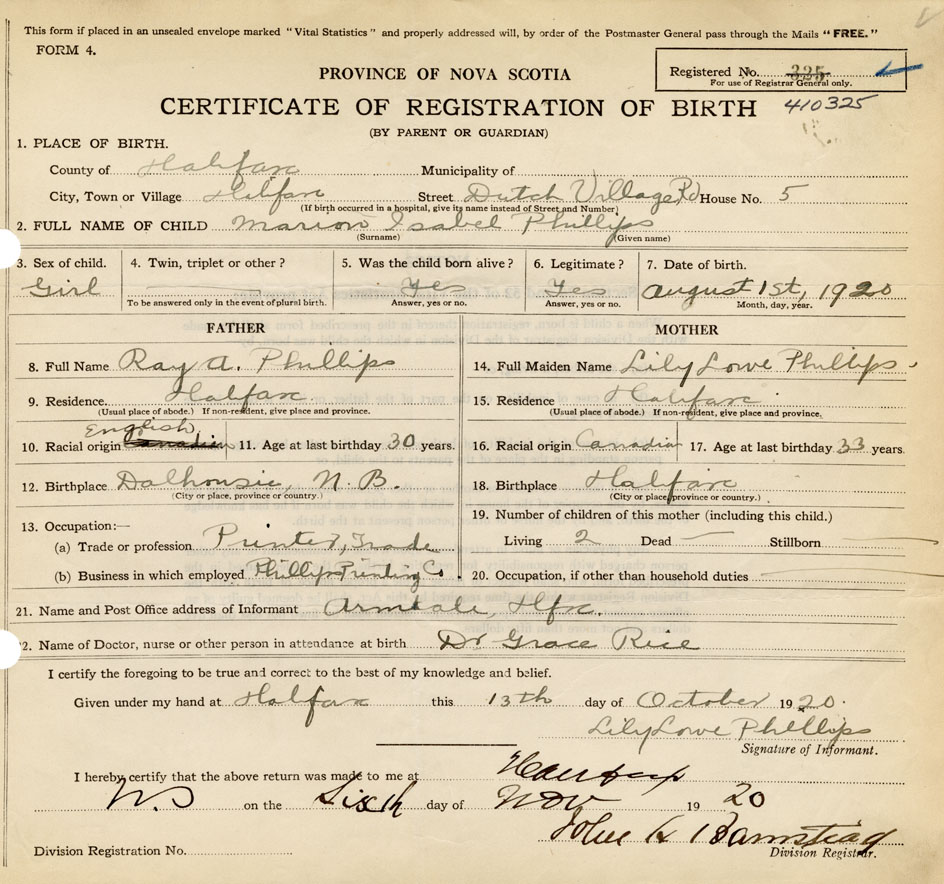 This form if placed in an unsealed envelope marked "Vital Statistics" and properly addressed will, by order of the Postmaster General pass through the Mails "FREE."
FORM 4.
PROVINCE OF NOVA SCOTIA
Registered No. 325
For use of Registrar General only.
CERTIFICATE OF REGISTRATION OF BIRTH 410325
(BY PARENT OR GUARDIAN)
1. PLACE OF BIRTH.
County of Halifax Municipality of
City, Town or Village Halifax Street Dutch Village Rd House No. 5
(If birth occurred in a hospital, give its name instead of Street and Number)
2. FULL NAME OF CHILD Marion Isabel Phillips
(Surname) (Given name)
3. Sex of child. 4. Twin, triplet or other? 5. Was the child born alive? 6. Legitimate? 7. Date of birth.
Girl Yes Yes August 1st, 1920
To be answered only in the event of plural birth. Answer, yes or no. Answer, yes or no. Month, day, year.
FATHER MOTHER
8. Full Name Ray A. Phillips 14. Full Maiden Name Lily Lowe Phillips
9. Residence Halifax 15. Residence Halifax
(Usual place of abode.) If non-resident, give place and province. (Usual place of abode.) If non-resident, give place and province.
English
10. Racial origin Canadian 11. Age at last birthday 30 years. 16. Racial origin Canadian 17. Age at last birthday 33 years.
12. Birthplace Dalhousie, N. B. 18. Birthplace Halifax
(City or place, province or country.) (City or place, province or country.)
13. Occupation:— 19. Number of children of this mother (including this child.)
(a) Trade or profession Printer, Trade Living 2 Dead — Stillborn —
(b) Business in which employed Phillips Printing Co. 20. Occupation, if other than household duties —
21. Name and Post Office address of Informant Armdale, Hfx.
22. Name of Doctor, nurse or other person in attendance at birth Dr Grace Rice
I certify the foregoing to be true and correct to the best of my knowledge and belief.
Given under my hand at Halifax this 13th day of October 1920.
Lily Lowe Phillips
Signature of Informant.
I hereby certify that the above return was made to me at Halifax
N.S on the Sixth day of Nov 1920
John H Barnstead
Division Registration No. Division Registrar.